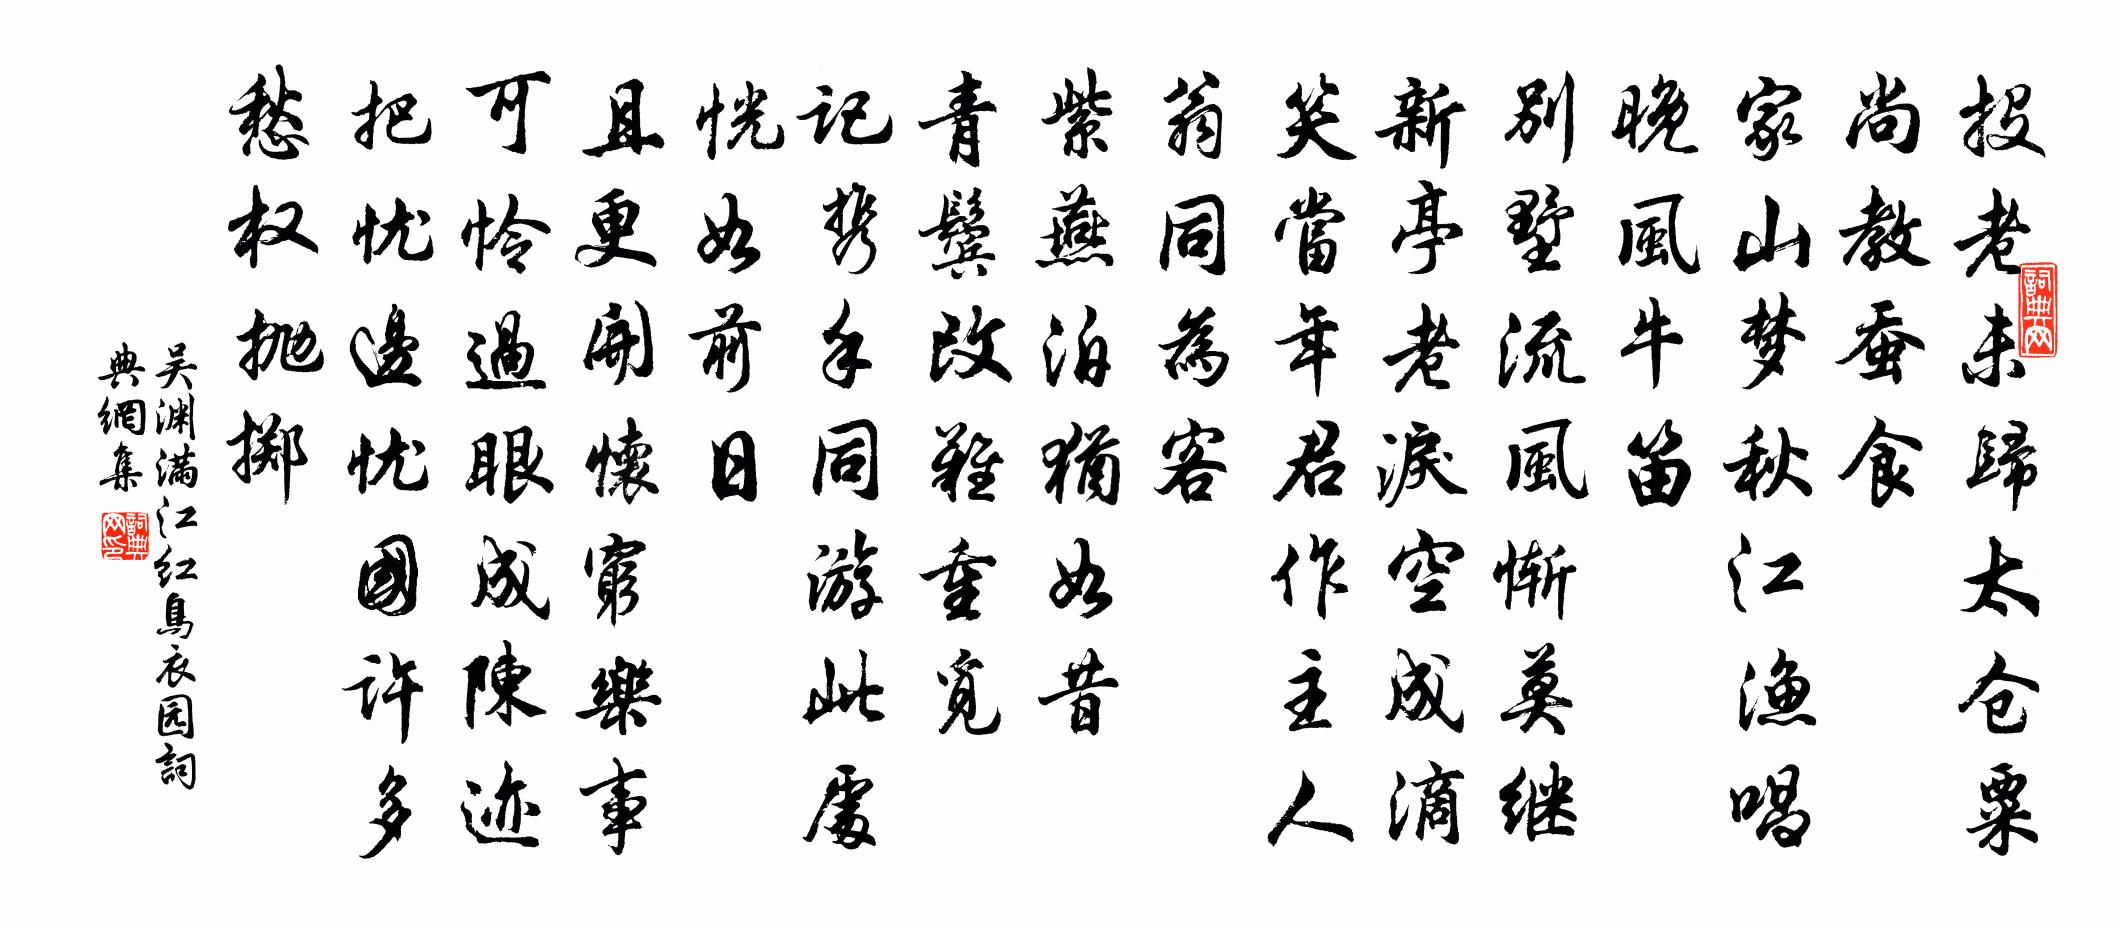 投老未歸太仓粟
尚教蚕食
家山梦秋江渔唱
晚風牛笛
别墅流風慚莫继
新亭老淚空成滴
笑當年君作主人
翁同為客
紫燕泊猶如昔
青鬓改難重覓
記携手同游此處
恍如前日
且更開懷窮樂事
可怜過眼成陳迹
把忧邊忧國許多
愁权抛掷
吴渊满江红烏衣园詞
典網集
詞典网
詞典网印